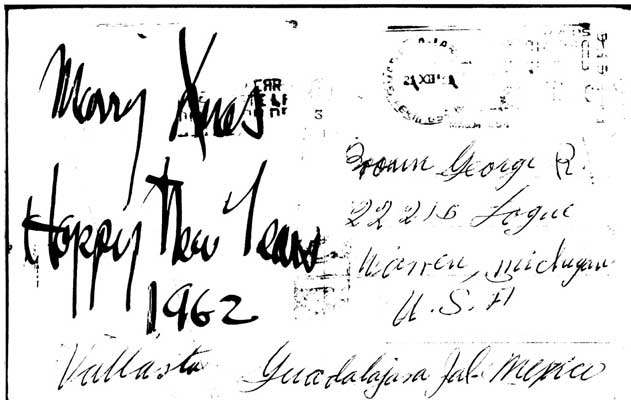 Merry Xmas
Happy New Years
1962
Brown George R.
22216 Logue
Warren, Michigan
U.S.A
Vallasta Guadalajara Jal. Mexico